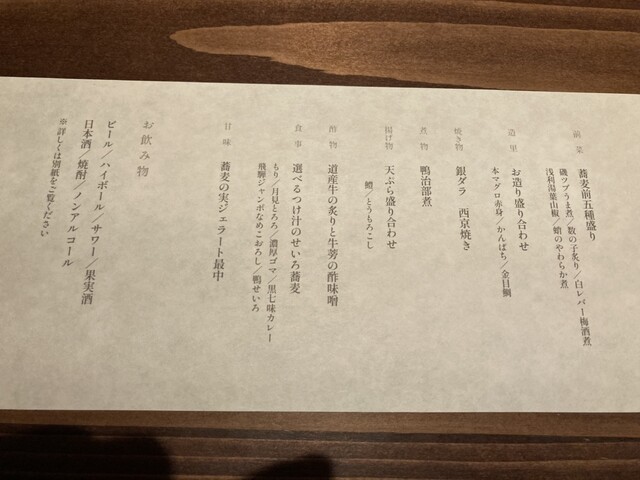 前菜
蕎麦前五種盛り
磯ツブうま煮／数の子炙り／白レバー梅酒煮
浅利湯葉山椒／蛸のやわらか煮
造里
お造り盛り合わせ
本マグロ赤身／かんぱち／金目鯛
焼き物
銀ダラ 西京焼き
煮物
鴨治部煮
揚げ物
天ぷら盛り合わせ
鱚／とうもろこし
酢物
道産牛の炙りと牛蒡の酢味噌
食事
選べるつけ汁のせいろ蕎麦
もり／月見とろろ／濃厚ゴマ／黒七味カレー
飛騨ジャンボなめこおろし／鴨せいろ
甘味
蕎麦の実ジェラート最中
お飲み物
ビール／ハイボール／サワー／果実酒
日本酒／焼酎／ノンアルコール
※詳しくは別紙をご覧ください